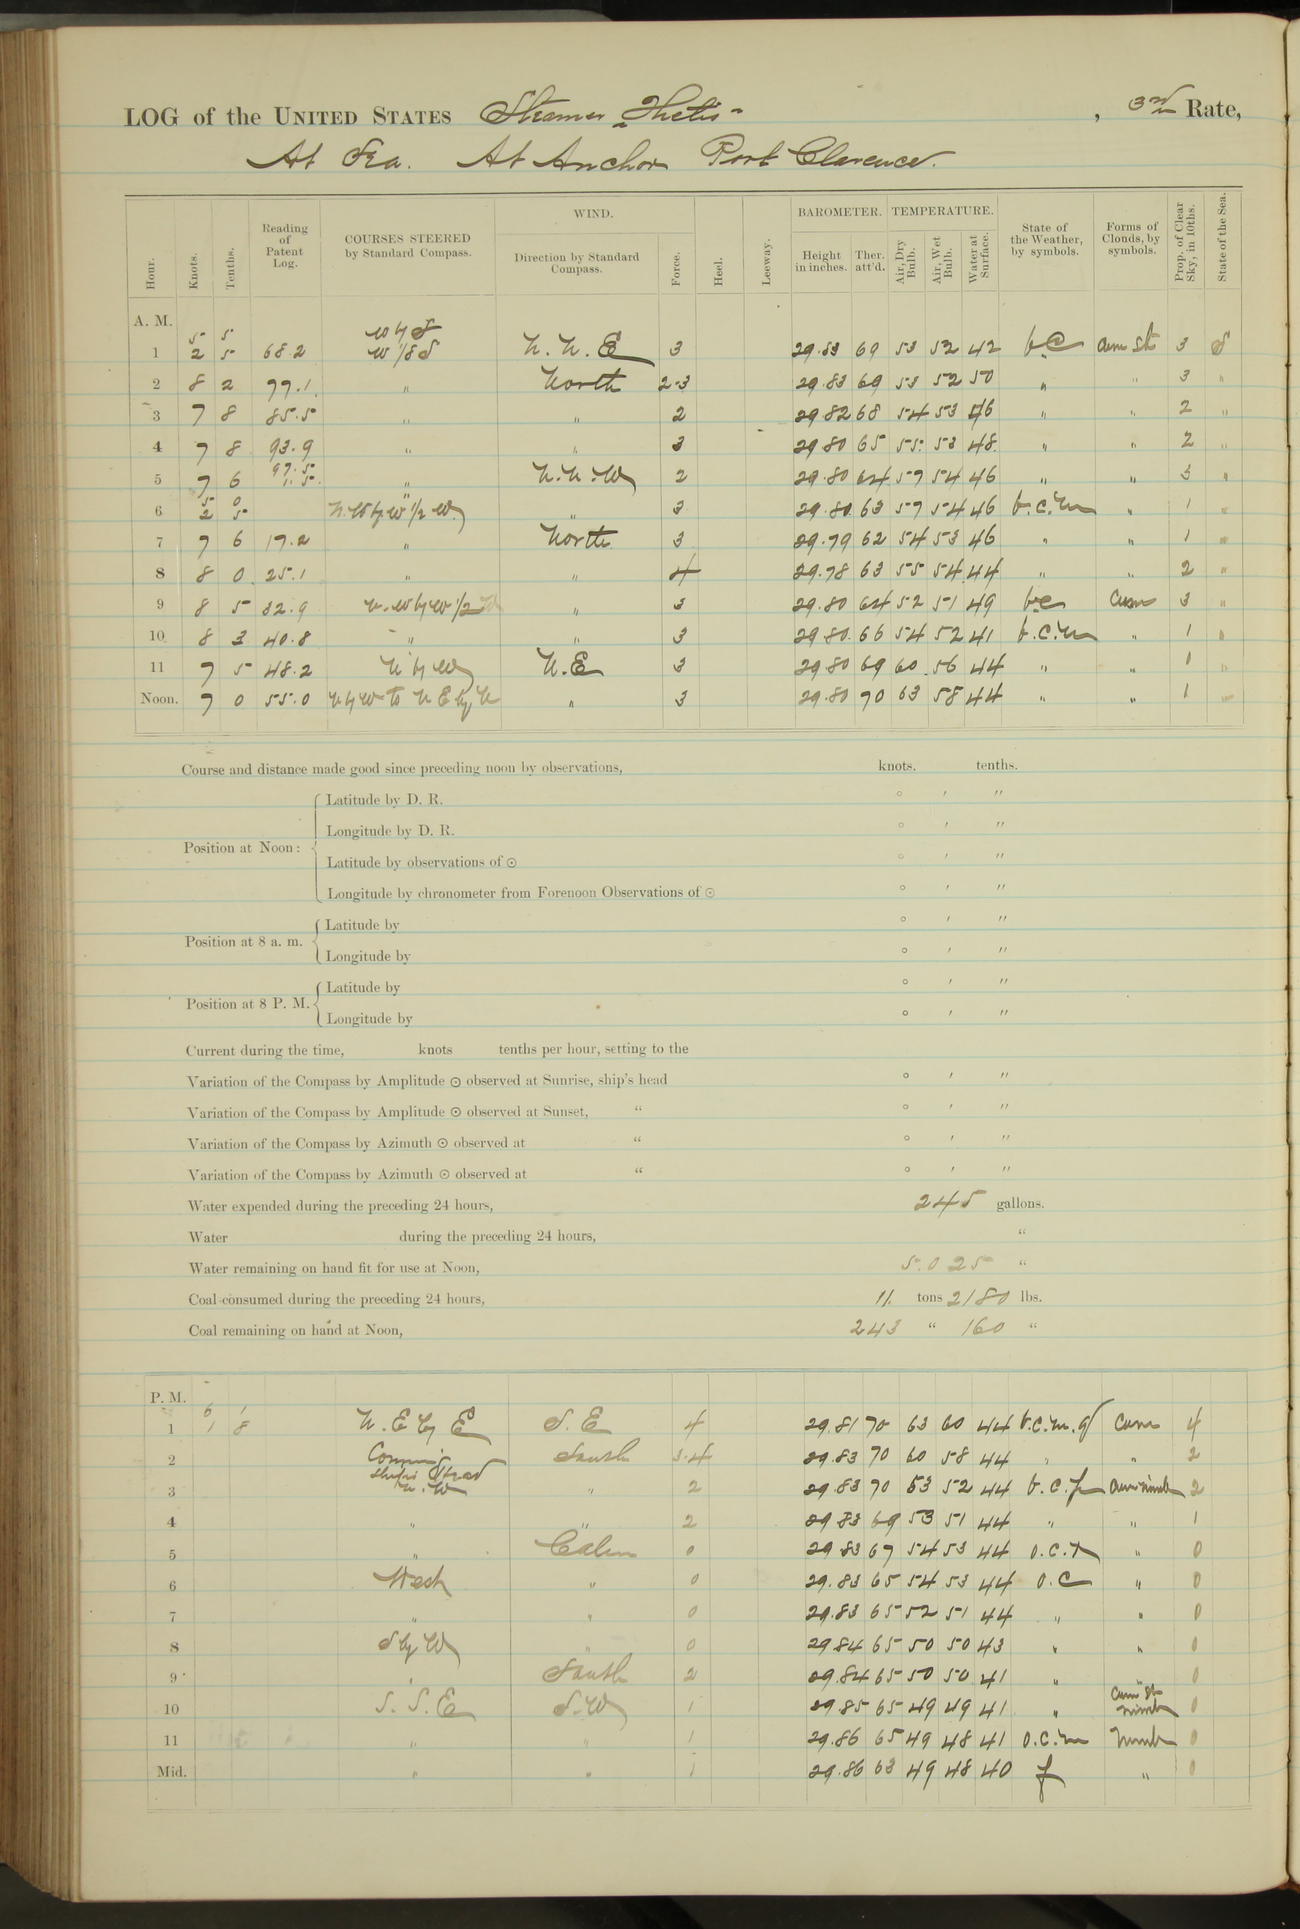 LOG of the UNITED STATES Steamer "Thetis" , 3rd Rate,
At Sea. At Anchor Port Clarence.
Hour. Knots. Tenths. Reading of Patent Log. COURSES STEERED by Standard Compass. WIND. Direction by Standard Compass. Force. Heel. Leeway. BAROMETER. Height in inches. Ther. att'd. TEMPERATURE. Air, Dry Bulb. Air, Wet Bulb. Water at Surface. State of the Weather, by symbols. Forms of Clouds, by symbols. Prop. of Clear Sky, in 10ths. State of the Sea.
A. M.
5 5 W by S
1 2 5 68.2 W 1/8 S N. N. E 3 29.83 69 53 52 42 b.c Cum St 3 S
2 8 2 77.1 " North 2-3 29.83 69 53 52 50 " " 3 "
3 7 8 85.5 " " 2 29 82 68 54 53 46 " " 2 "
4 7 8 93.9 " " 3 29 80 65 55 53 48 " " 2 "
97.5
5 7 6 1.5 " N. N. W 2 29.80 64 57 54 46 " " 3 "
5 0 "
6 2 5 N.W by W 1/2 W. " 3 29.80 63 57 54 46 b.c.m " 1 "
7 7 6 17.2 " North 3 29.79 62 54 53 46 " " 1 "
8 8 0 25.1 " " 4 29.78 63 55 54 44 " " 2 "
9 8 5 32.9 N. W by W 1/2 W " 3 29.80 64 52 51 49 b.c Cum 3 "
10 8 3 40.8 " " 3 29 80 66 54 52 41 b.c.m " 1 "
11 7 5 48.2 N by W N.E 3 29.80 69 60 56 44 " " 0 "
Noon. 7 0 55.0 N by W to N E by N " 3 29.80 70 63 58 44 " " 1 "
Course and distance made good since preceding noon by observations, knots. tenths.
Latitude by D. R. ° ′ ″
Longitude by D. R. ° ′ ″
Position at Noon:
Latitude by observations of ☉ ° ′ ″
Longitude by chronometer from Forenoon Observations of ☉ ° ′ ″
Latitude by ° ′ ″
Position at 8 a. m.
Longitude by ° ′ ″
Latitude by ° ′ ″
Position at 8 P. M.
Longitude by ° ′ ″
Current during the time, knots tenths per hour, setting to the
Variation of the Compass by Amplitude ☉ observed at Sunrise, ship's head ° ′ ″
Variation of the Compass by Amplitude ☉ observed at Sunset, " ° ′ ″
Variation of the Compass by Azimuth ☉ observed at " ° ′ ″
Variation of the Compass by Azimuth ☉ observed at " ° ′ ″
Water expended during the preceding 24 hours, 245 gallons.
Water during the preceding 24 hours, "
Water remaining on hand fit for use at Noon, 5.025 "
Coal consumed during the preceding 24 hours, 11. tons 2180 lbs.
Coal remaining on hand at Noon, 243 " 160 "
P. M.
6 1
1 1 8 N. E by E S. E 4 29.81 70 63 60 44 b.c.m.q Cum 4
2 South 3-4 29.83 70 60 58 44 " " 2
Ship's Head
3 N. W " 2 29.83 70 53 52 44 b.c.f 2
4 " " 2 29 83 69 53 51 44 " " 1
5 " Calm 0 29 83 67 54 53 44 " 0
6 West " 0 29.83 65 54 53 44 o.c " 0
7 " " 0 29.83 65 52 51 44 " " 0
8 S by W " 0 29 84 65 50 50 43 " " 0
9 " South 2 29.84 65 50 50 41 " 0
Cum St
10 S. S. E S.W 1 29.85 65 49 49 41 " Nimb 0
11 " " 1 29.86 65 49 48 41 o.c.m Nimb 0
Mid. " " 1 29.86 63 49 48 40 f " 0